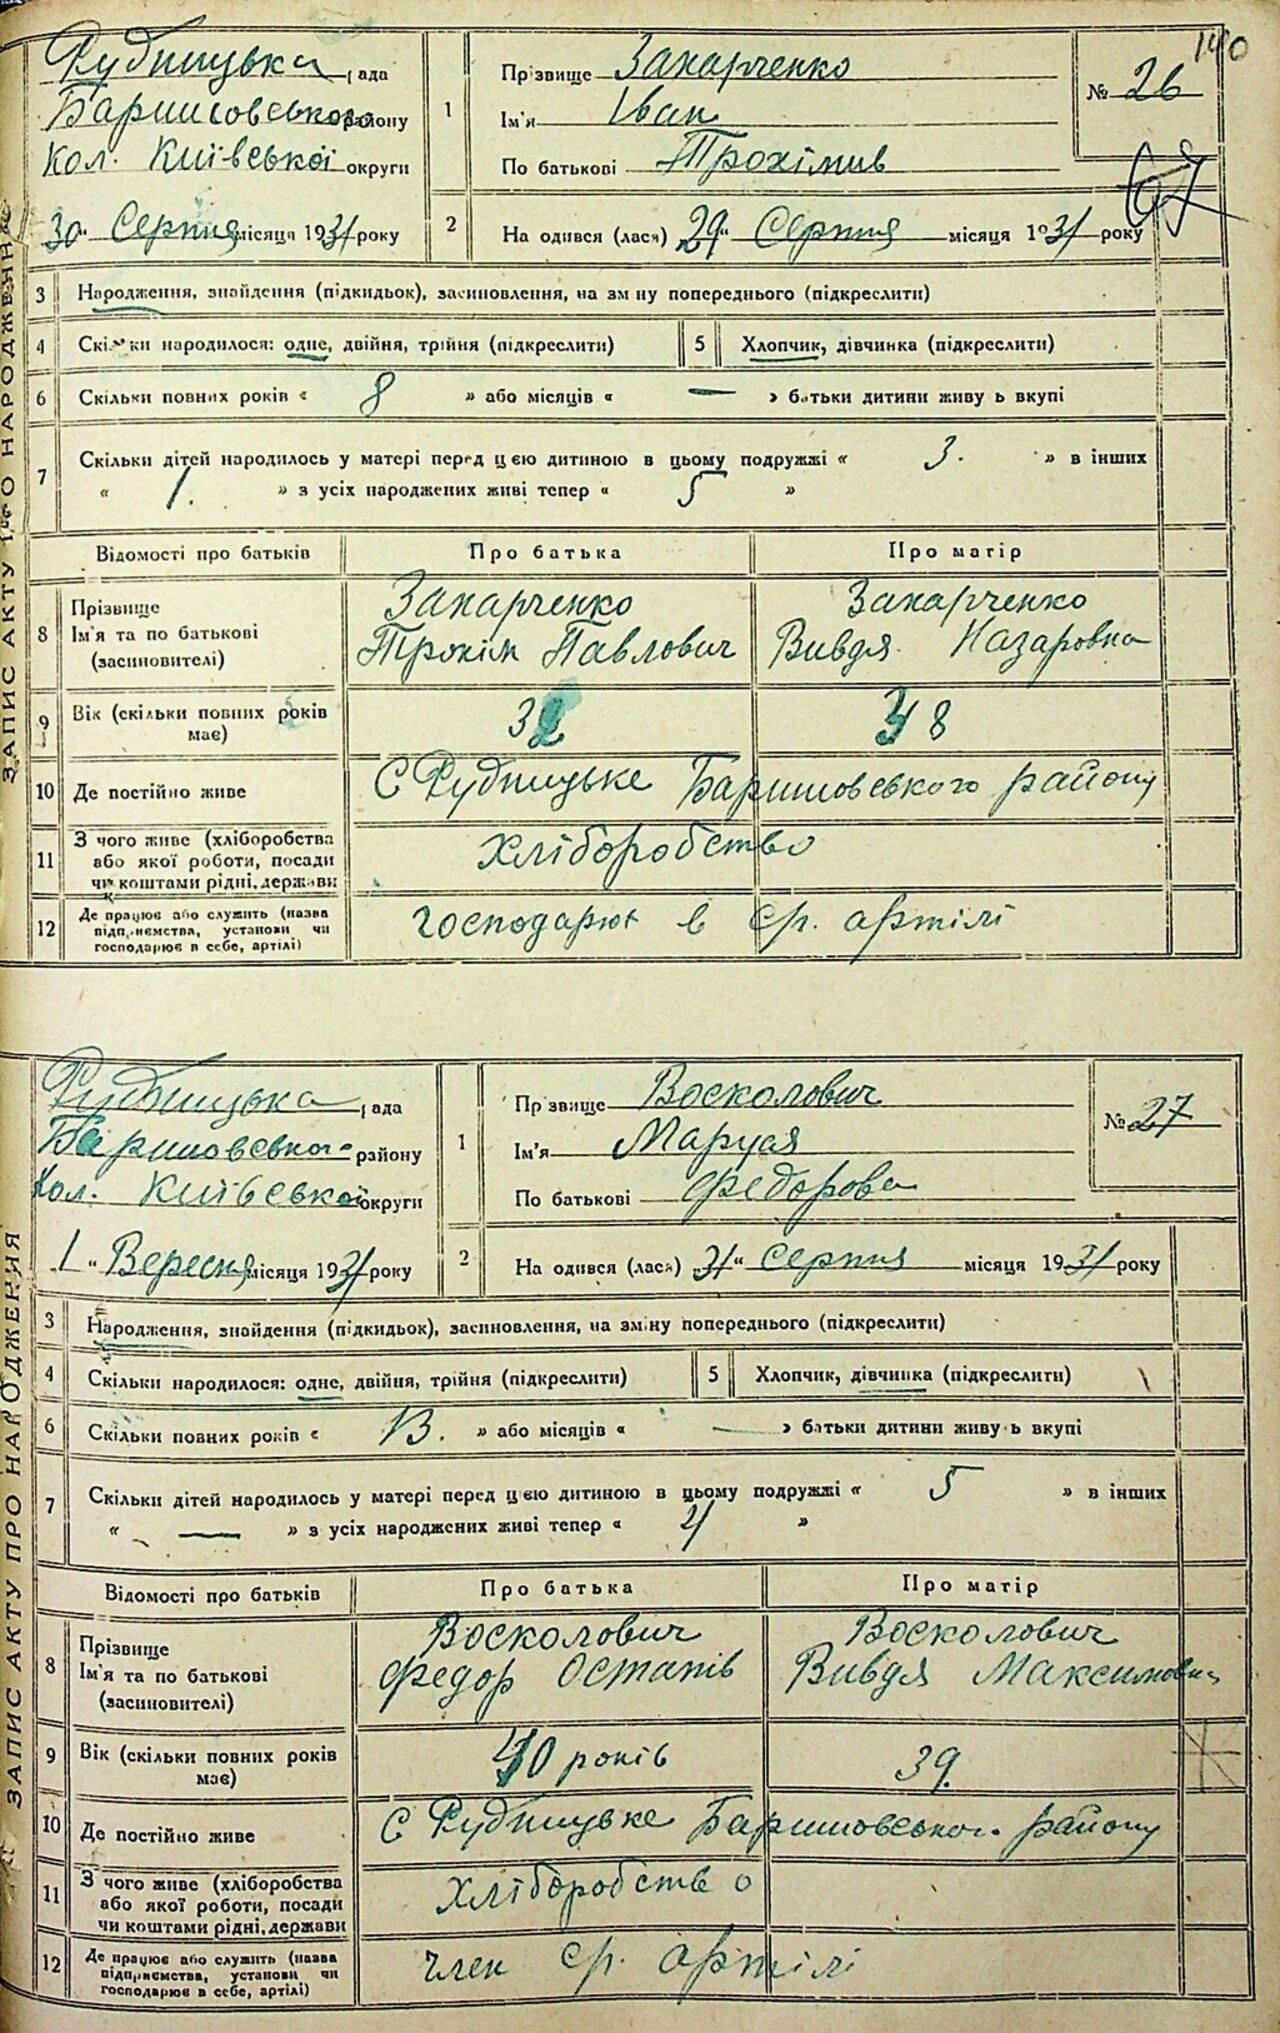 140
ЗАПИС АКТУ ПРО НАРОДЖЕННЯ
Рудницька рада
Баришовського району
Кол. Київської округи
„30“ Серпня місяця 1931 року
1 Прізвище Захарченко
Ім'я Іван
По батькові Трохимів
№ 26
67
2 Народився (лася) „29“ Серпня місяця 1931 року
3 Народження, знайдення (підкидьок), засиновлення, на зміну попереднього (підкреслити)
4 Скільки народилося: одне, двійня, трійня (підкреслити) 5 Хлопчик, дівчинка (підкреслити)
6 Скільки повних років « 8 » або місяців « — » батьки дитини живуть вкупі
7 Скільки дітей народилось у матері перед цією дитиною в цьому подружжі « 3. » в інших
« 1. » з усіх народжених живі тепер « 5 »
Відомості про батьків Про батька Про матір
8 Прізвище Захарченко Захарченко
Ім'я та по батькові Трохим Павлович Вивдя Назаровна
(засиновителі)
9 Вік (скільки повних років має) 38
10 Де постійно живе С Рудницьке Баришовського району
11 З чого живе (хліборобства
або якої роботи, посади Хліборобство
чи коштами рідні, держави
12 Де працює або служить (назва
підприємства, установи чи господарюх в ср. артілі
господарює в себе, артілі)
ЗАПИС АКТУ ПРО НАРОДЖЕННЯ
Рудницька рада
Баришовського району
Кол. Київської округи
1 “ Вересня місяця 1931 року
1 Прізвище Восколович
Ім'я Маруся
По батькові Федорова
№ 27
2 Народився (лася) „31“ Серпня місяця 1931 року
3 Народження, знайдення (підкидьок), засиновлення, на зміну попереднього (підкреслити)
4 Скільки народилося: одне, двійня, трійня (підкреслити) 5 Хлопчик, дівчинка (підкреслити)
6 Скільки повних років « 13. » або місяців « — » батьки дитини живуть вкупі
7 Скільки дітей народилось у матері перед цією дитиною в цьому подружжі « 5 » в інших
« — » з усіх народжених живі тепер « 4 »
Відомості про батьків Про батька Про матір
8 Прізвище Восколович Восколович
Ім'я та по батькові Федор Остапів Вивдя Максимовна
(засиновителі)
9 Вік (скільки повних років має) 40 років 39.
10 Де постійно живе С Рудницьке Баришовського району
11 З чого живе (хліборобства
або якої роботи, посади Хліборобство
чи коштами рідні, держави
12 Де працює або служить (назва
підприємства, установи чи член ср. артілі
господарює в себе, артілі)